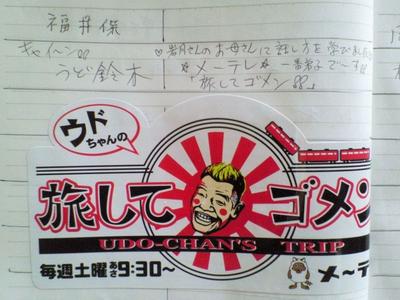 福井保
キャイ〜ン
うど鈴木
♡岩月さんのお母さんに話し方を学びました
☆メ〜テレ☆一番弟子で〜す
「旅してゴメン」
ウド
ちゃんの
旅して ゴメン
UDO-CHAN'S TRIP
毎週土曜あさ9:30〜
メ〜テ